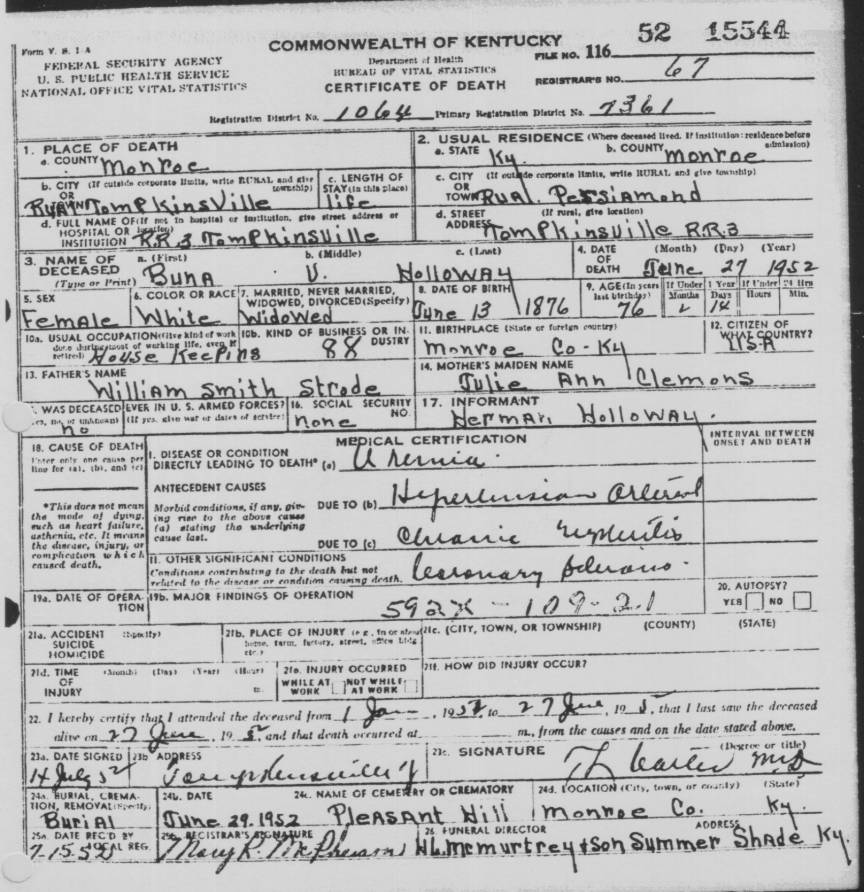 Form V. S. 1-A
COMMONWEALTH OF KENTUCKY
52 15544
FILE NO. 116
FEDERAL SECURITY AGENCY
U. S. PUBLIC HEALTH SERVICE
NATIONAL OFFICE VITAL STATISTICS
Department of Health
BUREAU OF VITAL STATISTICS
CERTIFICATE OF DEATH
REGISTRAR'S NO. 67
Registration District No. 1064 Primary Registration District No. 7361
1. PLACE OF DEATH
a. COUNTY Monroe
2. USUAL RESIDENCE (Where deceased lived. If institution: residence before admission)
a. STATE Ky. b. COUNTY Monroe
b. CITY (If outside corporate limits, write RURAL and give township)
OR TOWN Rural Tompkinsville
c. LENGTH OF STAY (in this place) life
c. CITY (If outside corporate limits, write RURAL and give township)
OR TOWN Rual. Persiamond
d. FULL NAME OF (If not in hospital or institution, give street address or location)
HOSPITAL OR INSTITUTION R.R 3 Tompkinsville
d. STREET ADDRESS (If rural, give location)
Tompkinsville R.R.3
3. NAME OF DECEASED (Type or Print)
a. (First) Buna b. (Middle) V. c. (Last) Holloway
4. DATE OF DEATH (Month) (Day) (Year)
June 27 1952
5. SEX Female
6. COLOR OR RACE White
7. MARRIED, NEVER MARRIED, WIDOWED, DIVORCED (Specify) Widowed
8. DATE OF BIRTH June 13 1876
9. AGE (In years last birthday) 76
If Under 1 Year Months Days 14
If Under 24 Hrs Hours Min.
10a. USUAL OCCUPATION (Give kind of work done during most of working life, even if retired) House Keeping
10b. KIND OF BUSINESS OR INDUSTRY 88
11. BIRTHPLACE (State or foreign country) Monroe Co-Ky
12. CITIZEN OF WHAT COUNTRY? USA
13. FATHER'S NAME
William Smith Strode
14. MOTHER'S MAIDEN NAME
Julie Ann Clemons
WAS DECEASED EVER IN U. S. ARMED FORCES?
(If yes, give war or dates of service)
no
16. SOCIAL SECURITY NO. none
17. INFORMANT
Herman Holloway.
18. CAUSE OF DEATH
Enter only one cause per line for (a), (b), and (c)
MEDICAL CERTIFICATION
INTERVAL BETWEEN ONSET AND DEATH
I. DISEASE OR CONDITION
DIRECTLY LEADING TO DEATH* (a) Uremia.
*This does not mean the mode of dying, such as heart failure, asthenia, etc. It means the disease, injury, or complication which caused death.
ANTECEDENT CAUSES
Morbid conditions, if any, giving rise to the above cause (a) stating the underlying cause last.
DUE TO (b) Hypertension Arterial
DUE TO (c) Chronic Nephritis
II. OTHER SIGNIFICANT CONDITIONS
Conditions contributing to the death but not related to the disease or condition causing death.
Coronary Sclerosis.
19a. DATE OF OPERATION
19b. MAJOR FINDINGS OF OPERATION
592X - 109-21
20. AUTOPSY?
YES NO
21a. ACCIDENT SUICIDE HOMICIDE (Specify)
21b. PLACE OF INJURY (e.g., in or about home, farm, factory, street, office bldg etc.)
21c. (CITY, TOWN, OR TOWNSHIP) (COUNTY) (STATE)
21d. TIME OF INJURY (Month) (Day) (Year) (Hour) m.
21e. INJURY OCCURRED
WHILE AT WORK NOT WHILE AT WORK
21f. HOW DID INJURY OCCUR?
22. I hereby certify that I attended the deceased from 1 Jan, 1952, to 27 June, 195, that I last saw the deceased
alive on 27 June, 1952 and that death occurred at m., from the causes and on the date stated above.
23a. DATE SIGNED 14 July 52
23b ADDRESS
23c. SIGNATURE (Degree or title)
Carter MD
24a. BURIAL, CREMATION, REMOVAL (Specify) Burial
24b. DATE June 29.1952
24c. NAME OF CEMETERY OR CREMATORY Pleasant Hill
24d. LOCATION (City, town, or county) (State)
Monroe Co. Ky.
25a. DATE REC'D BY LOCAL REG. 7-15.52
25b. REGISTRAR'S SIGNATURE
Mary R. McPherson
26 FUNERAL DIRECTOR ADDRESS
H.L. McMurtrey & Son Summer Shade Ky.